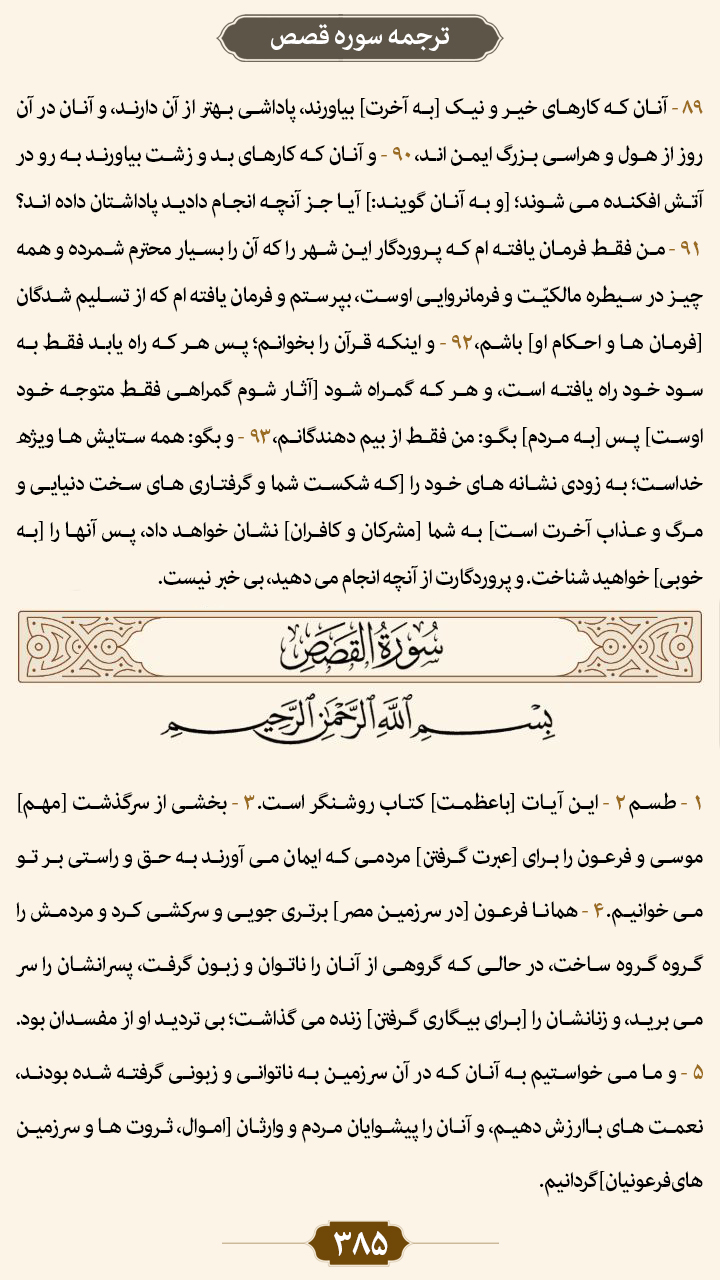 ترجمه سوره قصص
۸۹ - آنـان کـه کارهـای خیـر و نیـک [بـه آخرت] بیاورند، پاداشـی بهتـر از آن دارنـد، و آنـان در آن
روز از هـول و هراسـی بـزرگ ایمـن انـد،۹۰ - و آنـان کـه کارهـای بـد و زشـت بیاورنـد بـه رو در
آتـش افکنـده مـی شـوند؛ [و بـه آنـان گوینـد:] آیـا جـز آنچـه انجـام دادیـد پاداشـتان داده انـد؟
۹۱ - مـن فقـط فرمـان یافتـه ام کـه پـروردگار ایـن شـهر را کـه آن را بسـیار محترم شـمرده و همه
چیـز در سـیطره مالکیّـت و فرمانروایـی اوسـت، بپرسـتم و فرمان یافته ام که از تسـلیم شـدگان
[فرمـان هـا و احـکام او] باشـم،۹۲ - و اینکـه قـرآن را بخوانـم؛ پـس هـر کـه راه یابـد فقـط بـه
سـود خـود راه یافتـه اسـت، و هـر کـه گمـراه شـود [آثـار شوم گمراهـی فقـط متوجـه خـود
اوسـت] پـس [بـه مـردم] بگـو: من فقـط از بیم دهندگانـم،۹۳ - و بگو: همه سـتایش هـا ویژه
خداسـت؛ بـه زودی نشـانه هـای خـود را [کـه شکسـت شما و گرفتـاری هـای سـخت دنیایـی و
مـرگ و عـذاب آخـرت اسـت] بـه شما [مشرکان و کافـران] نشـان خواهـد داد، پـس آنهـا را [بـه
خوبی] خواهید شناخت. و پروردگارت از آنچه انجام می دهید، بی خبر نیست.
سُورَةُ القَصَصِ
بِسْمِ اللَّهِ الرَّحْمَٰنِ الرَّحِيمِ
۱ - طسـم۲ - ایـن آیـات [باعظمـت] کتـاب روشـنگر اسـت.۳ - بخشـی از سرگذشـت [مهـم]
موسـی و فرعـون را بـرای [عبرت گـرفتن] مردمـی کـه ایمان مـی آورنـد بـه حـق و راسـتی بـر تـو
مـی خوانیـم.۴ - همانـا فرعـون [در سرزمیـن مصر] برتـری جویـی و سرکشـی کـرد و مردمـش را
گـروه گـروه سـاخت، در حالـی کـه گروهـی از آنـان را ناتـوان و زبـون گرفـت، پسرانشـان را سر
مـی بریـد، و زنانشـان را [بـرای بیـگاری گـرفتن] زنده می گذاشـت؛ بی تردیـد او از مفسـدان بود.
۵ - و مـا مـی خواسـتیم بـه آنـان کـه در آن سرزمیـن بـه ناتوانـی و زبونـی گرفتـه شـده بودنـد،
نعمـت هـای بـاارزش دهیـم، و آنـان را پیشـوایان مـردم و وارثـان [امـوال، ثـروت هـا و سرزمیـن
های فرعونیان] گردانیم.
۳۸۵